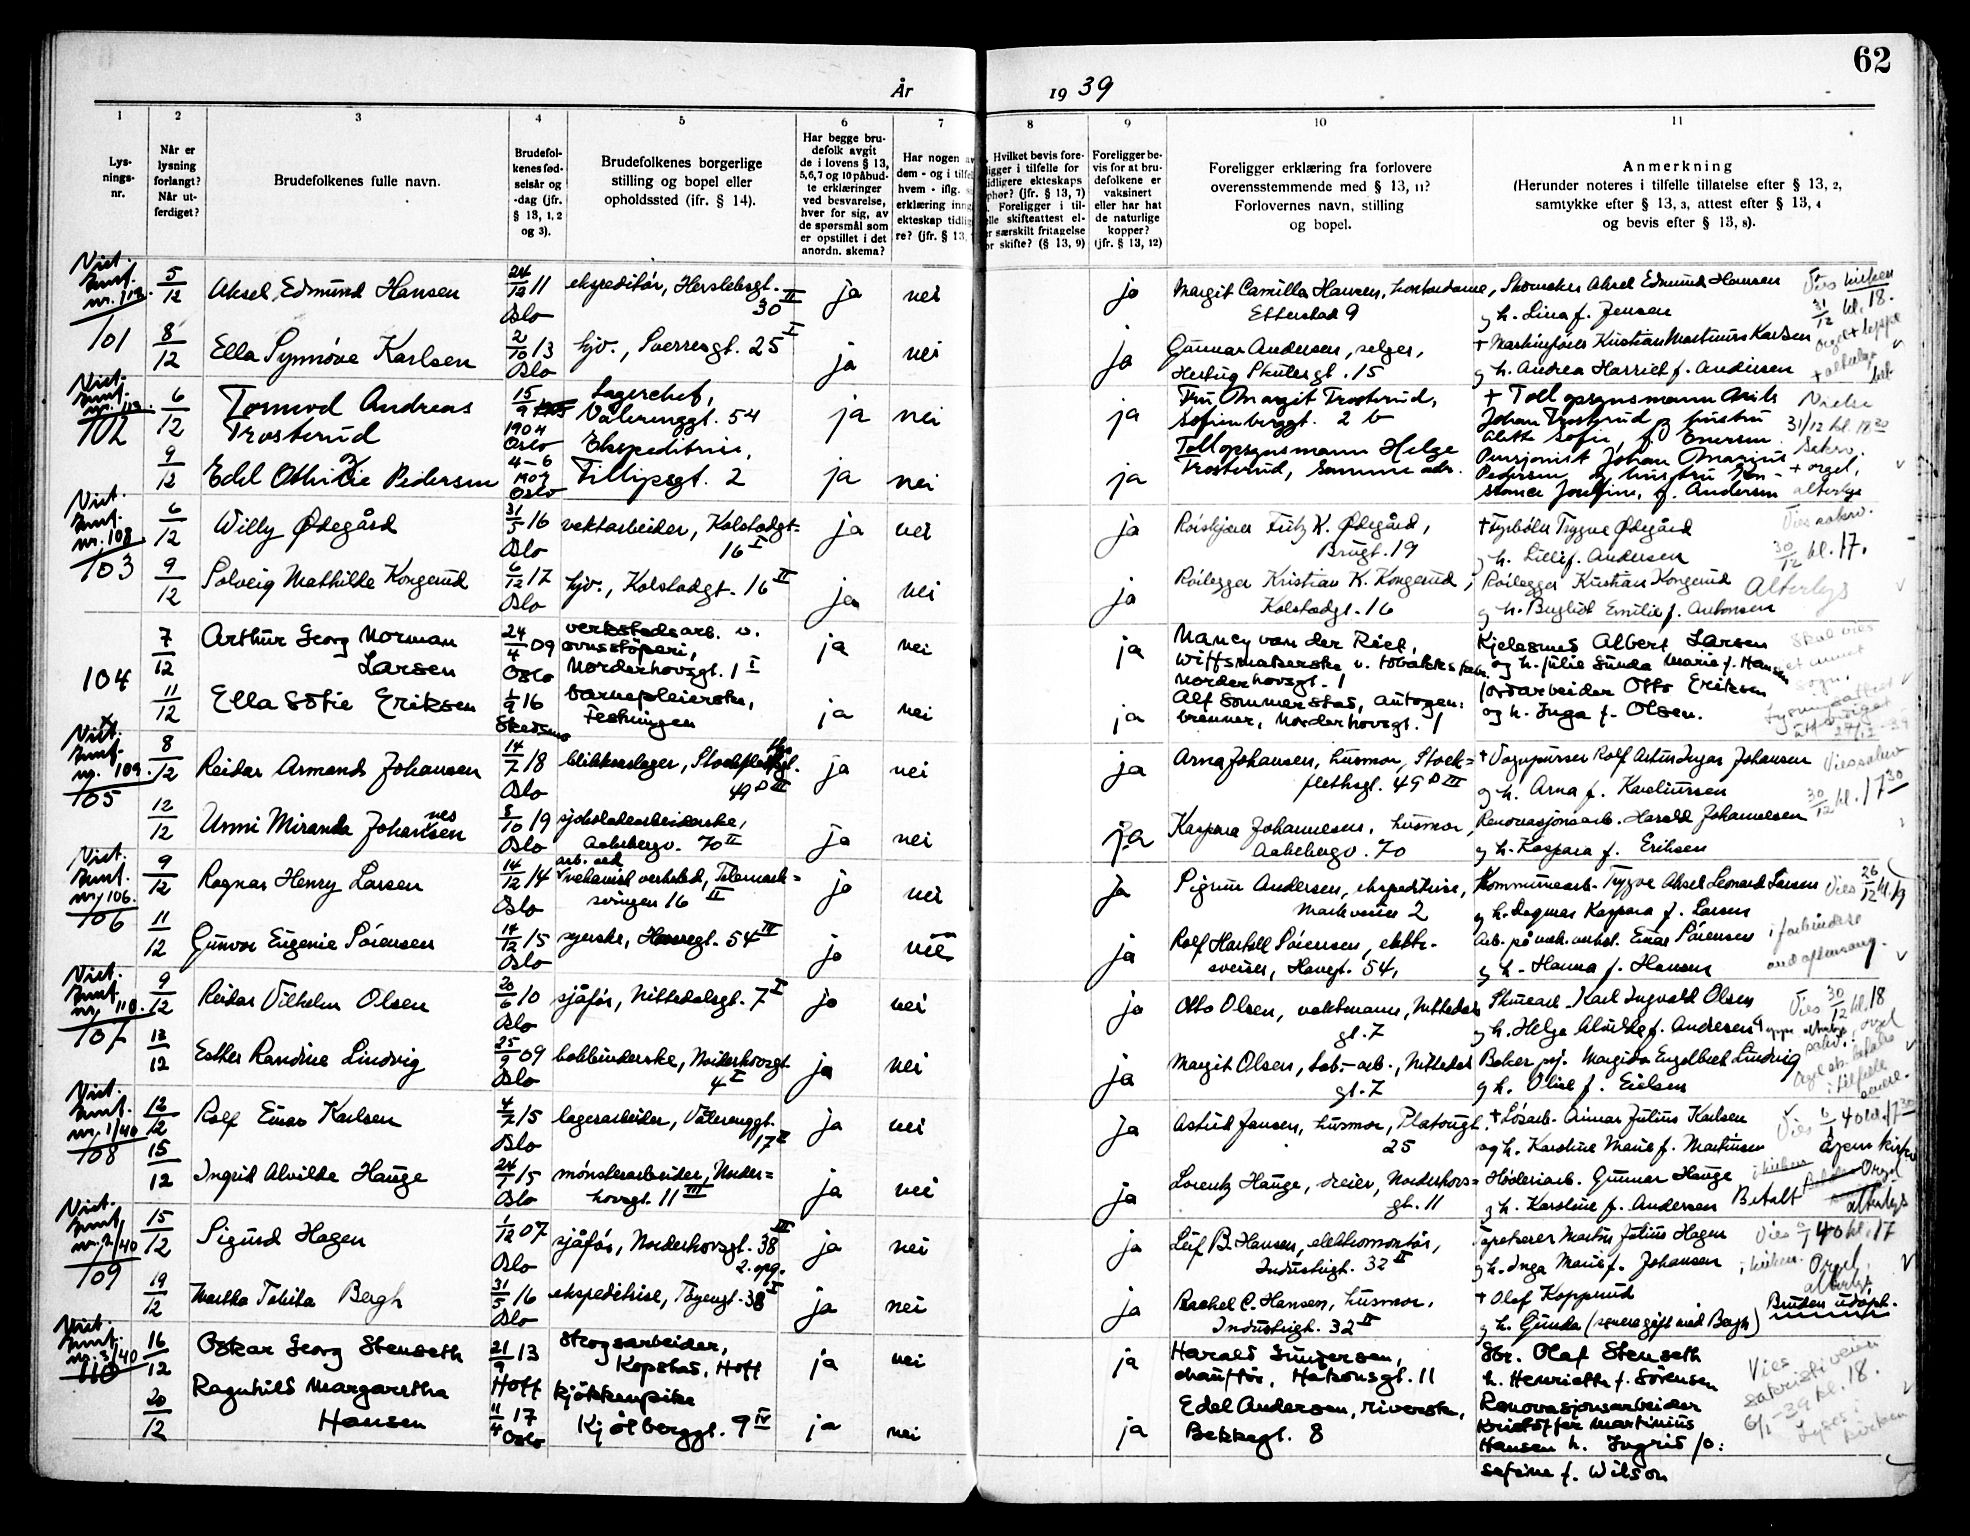 62
År 1939
1 2 3 4 5 6 7 8 9 10 11
Lys-
nings-
nr.
Når er
lysning
forlangt?
Når ut-
ferdiget?
Brudefolkenes fulle navn.
Brudefol-
kenes fød-
selsår og
-dag (jfr.
§ 13, 1, 2
og 3).
Brudefolkenes borgerlige
stilling og bopel eller
opholdssted (ifr. § 14).
Har begge bru-
defolk avgit
de i lovens § 13,
5,6,7 og 10 påbud-
te erklæringer
ved besvarelse,
hver for sig, av
de spørsmål som
er opstillet i det
anordn. skema?
Har nogen av
dem - og i tilfel
hvem - iflg.
erklæring inng
ekteskap tidlig
re? (jfr. § 13,
Hvilket bevis fore-
ligger i tilfelle for
tidligere ekteskaps
ophør? (jfr. § 13, 7)
Foreligger i til-
felle skifteattest el-
er særskilt fritagelse
for skifte? (§ 13, 9)
Foreligger be-
vis for at bru-
defolkene er
vaksinert
eller har hat
de naturlige
kopper?
(jfr. § 13, 12)
Foreligger erklæring fra forlovere
overensstemmende med § 13, 11?
Forlovernes navn, stilling
og bopel.
Anmerkning
(Herunder noteres i tilfelle tillatelse efter § 13, 2,
samtykke efter § 13, 3, attest efter § 13, 4
og bevis efter § 13, 8).
Viet.
nr. 112.
101
5/12 Aksel Edmund Hansen 24/12 11 Oslo ekspeditør, Herslebsgt. 30 II ja nei ja Margit Camilla Hansen,
Etterstad 9
Skomaker Aksel Edmund Hansen
og h. Lina f. Jensen
Vies kirken
31/12 kl. 18.
8/12 Ella Synnøve Karlsen 2/10 13 Oslo hjv., Sverresgt. 25 I ja nei ja Gunnar Andersen, selger,
Hertug Skulesgt. 15
og h. Andrea Harriet f. Andersen
Viet.
nr. 113.
102
6/12 Tormod Andreas
Trosterud
15/9 1904 Oslo Lagerchef,
Vålerenggt. 54 ja nei ja Fru Margit Trosterud,
Sofienberggt. 2 b
+ Tollopsynsmann Nils
Johan Trosterud og hustru
Alette Sofie, f. Enersen.
Vielse
31/12 kl. 18 30
9/12 Edel Othilie Pedersen 4-6 1907 Oslo Ekspeditrise,
Fillipsgt. 2 ja nei ja Tollopsynsmann Helge
Trosterud, samme adr.
Pensjonist Johan Marius
Pedersen og hustru Kon-
stance Josefine, f. Andersen
+ orgel,
Viet.
nr. 108
103
6/12 Willy Ødegård 31/5 16 Oslo vektarbeider, Kolstadgt.
16 I ja nei ja Rørskjærer Fritz K. Ødegård,
Brugt. 19
+ Fyrbøter Trygve Ødegård
og h. Lilli f. Andersen
30/12 kl. 17.
9/12 Solveig Mathilde Kongerud 6/12 17 Oslo hjv., Kolstadgt. 16 II ja nei ja Rørlegger Kristian K. Kongerud,
Kolstadgt. 16
Rørlegger Kristian Kongerud
og h. Emilie f. Antonsen
Alterlys
104
7/12 Arthur Georg Norman
Larsen
24/4 09 Oslo verkstedsarb. v.
ovnsstøperi,
Norderhovsgt. 1 I ja nei ja Nancy van der Riet,
Norderhovsgt. 1
Kjelesmed Albert Larsen
og h. Julie Gunda Marie f. Hansen
Skal vies
et annet
sogn.
11/12 Ella Sofie Eriksen 16 Skedsmo barnepleierske,
Festningen ja nei ja Alf Sommerstad, autogen-
brenner, Norderhovsgt. 1
Jordarbeider Otto Eriksen
og h. Inga f. Olsen.
Viet.
nr. 109.
105
8/12 Reidar Armand Johansen 14/7 18 Oslo blikkenslager, Stockflethsgt.
49 D III ja nei ja Arna Johansen, husmor, Stock-
flethsgt. 49 D III
+ Vognpusser Rolf Artur Ingar Johansen
og h. Arna f. Kareliussen
30/12 kl. 17 30
12/12 Unni Miranda Johannessen 8/10 19 Oslo sjokoladearbeiderske,
Aakebergv. 70 II ja nei ja Kaspara Johannesen, husmor,
Aakebergv. 70
Renovasjonsarb. Harald Johannesen
og h. Kaspara f. Eriksen
Viet.
nr. 106.
106
9/12 Ragnar Henry Larsen 14/12 14 Oslo arb. ved
mekanisk verksted, Telemark-
svingen 16 II ja nei ja Sigrun Andersen, ekspeditrise,
Markveien 2
Kommunearb. Trygve Aksel Leonard Larsen
og h. Dagmar Kaspara f. Larsen
Vies 26/12 kl. 19
11/12 Gunvor Eugenie Sørensen 14/12 15 Oslo syerske, Havregt. 54 IV ja nei ja Rolf Hartvll Sørensen, elektr.
sveiser, Havregt. 54,
Arb. på mek. verkst. Einar Sørensen
og h. Hanna f. Hansen
i forbindelse
med aftensang.
Viet.
nr. 110.
107
9/12 Reidar Vilhelm Olsen 20/6 10 Oslo sjåfør, Nittedalsgt. 7 I ja nei ja Otto Olsen, vaktmann, Nittedals
gt. 7
Skinnarb. Karl Ingvald Olsen
og h. Helga Alvilde f. Andresen
Vies 30/12 kl. 18
12/12 Esther Randine Lindvig 25/9 09 Oslo bokbinderske, Norderhovsgt
4 I ja nei ja Margit Olsen, fab.-arb., Nittedals
gt. 7
Baker Engelbert Lindvig
og h. Olise f. Eielsen
Viet.
nr. 1/40
108
12/12 Rolf Einar Karlsen 4/7 15 Oslo lagerarbeider, Vålerenggt.
17 II ja nei ja Astrid Jansen, husmor, Platougt.
25
+ Løsarb. Einar Julius Karlsen
og h. Karoline Marie f. Martinsen
Vies 6/1 40 kl. 17 30
15/12 Ingrid Alvilde Hauge 24/1 15 Oslo mønsterarbeider, Norder-
hovsgt. 11 III ja nei ja Lorentz Hauge, dreier, Norderhovs-
gt. 11
Gunnar Hauge
og h. Karoline f. Andersen
Betalt
Orgel
alterlys
Viet.
nr. 2/40
109
15/12 Sigurd Hagen 1/12 07 Oslo sjåfør, Norderhovsgt. 38 III
2. opg. ja nei ja Leif B. Hansen, elektromontør,
Industrigt. 32 II
Tapetserer Martin Julius Hagen
og h. Inga Marie f. Johansen
i kirken. Orgel,
19/12 Martha Tobita Bergh 31/5 16 Oslo ekspeditrise, Tøyengt. 38 I ja nei ja Rachel C. Hansen, husmor,
Industrigt. 32 II
+ Olaf Kopperud
og h. Gunda (senere gift med Bergh)
Bruden udøpt.
Viet.
nr. 3/40
110
16/12 Oskar Georg Stenseth 21/9 13 Hoff Skogsarbeider,
Kopstad, Hoff ja nei ja Harald Gundersen,
chauffør, Håkonsgt. 11
Gbr. Olaf Stenseth
h. Henriette f. Sørensen
Vies
sakristi veien
6/1-39 kl. 18.
20/12 Ragnhild Margaretha
Hansen
11/4 17 Oslo kjøkkenpike
Kjølberggt. 9 IV ja nei ja Edel Andersen, riverske,
Bekkegt. 8
Renovasjonsarbeider
Kristoffer Martinius
Hansen h. Ingrid Jo:
sefine f. Wilson
Lyses i
kirken